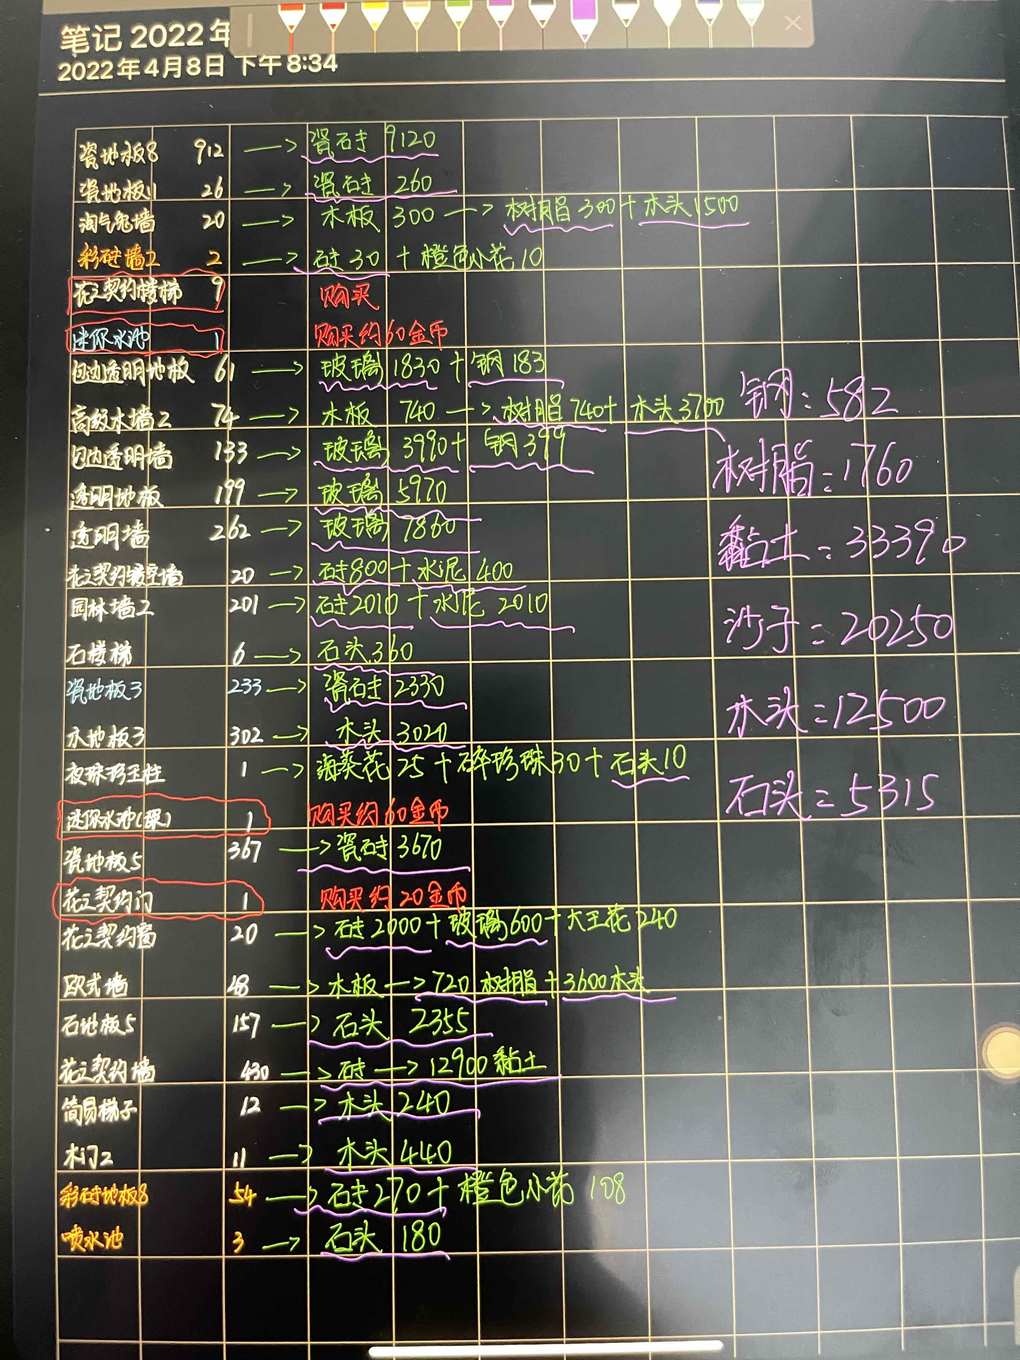 笔记 2022年
2022年4月8日 下午8:34
瓷地板8 912 → 瓷砖 9120
瓷地板1 26 → 瓷砖 260
淘气鬼墙 20 → 木板 300 → 树脂 300 + 木头1500
彩砖墙2 2 → 砖 30 + 橙色小花 10
花之契约楼梯 9 购买
迷你水池 1 购买约60金币
包边透明地板 61 → 玻璃 1830 + 钢 183
高级木墙2 74 → 木板 740 → 树脂 740+ 木头3700
包边透明墙 133 → 玻璃 3990+ 钢 399
透明地板 199 → 玻璃 5970
透明墙 262 → 玻璃 7860
花之契约镂空墙 20 → 砖800 + 水泥 400
园林墙2 201 → 砖2010 + 水泥 2010
石楼梯 6 → 石头360
瓷地板3 233 → 瓷砖 2330
木地板3 302 → 木头 3020
夜珠珍玉柱 1 → 海葵花 25 + 碎珍珠30 + 石头10
迷你水池(翠) 1 购买约60金币
瓷地板5 367 → 瓷砖 3670
花之契约门 1 购买约 20金币
花之契约窗 20 → 砖2000 + 玻璃600 + 大王花 240
欧式墙 48 → 木板 → 720 树脂 + 3600木头
石地板5 157 → 石头 2355
花之契约墙 430 → 砖 → 12900 黏土
简易梯子 12 → 木头 240
木门2 11 → 木头 440
彩砖地板8 54 → 砖270 + 橙色小花 108
喷水池 3 → 石头 180
钢:582
树脂:1760
黏土:33390
沙子=20250
木头=12500
石头=5315